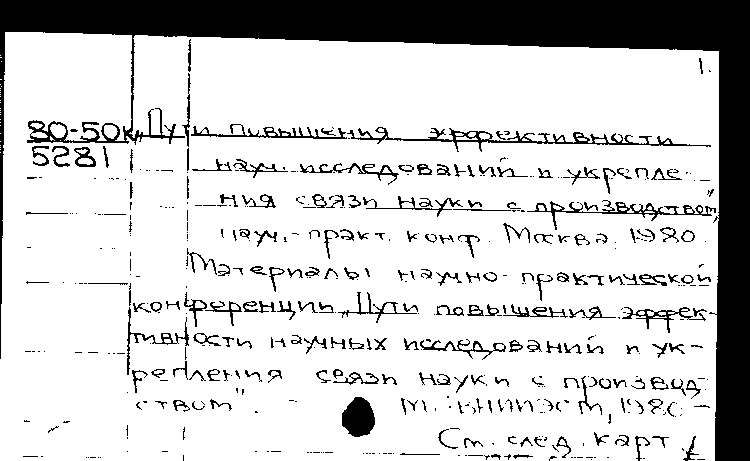 1.
80-50к „Пути повышения эффективности
5281
науч. исследований и укрепле-
ния связи науки с производством",
науч.-практ. конф. Москва. 1980.
Материалы научно-практической
конференции „Пути повышения эффек-
тивности научных исследований и ук-
репления связи науки с производ-
ством". - М.: ВНИИЭСМ, 1980 -
См. след. карт.